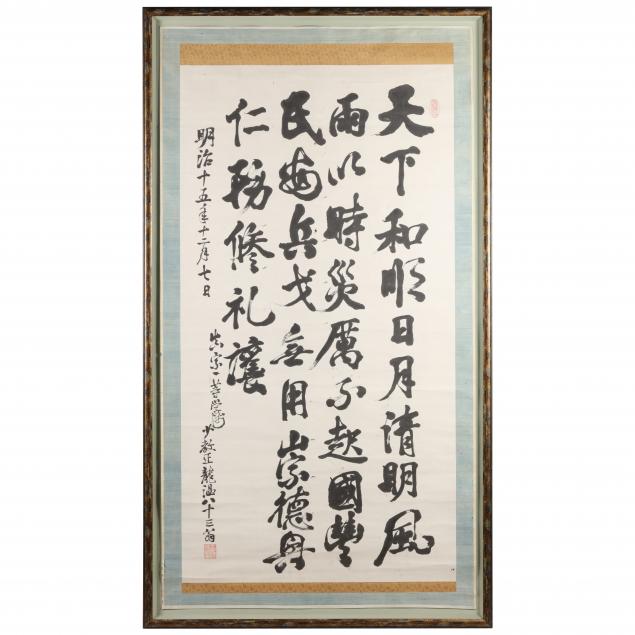 天下和順日月清明風
雨以時災厲不起國豐
民安兵戈無用崇德興
仁務修礼讓
明治十五年十二月七日
真宗一等学師
少教正龍温八十三翁